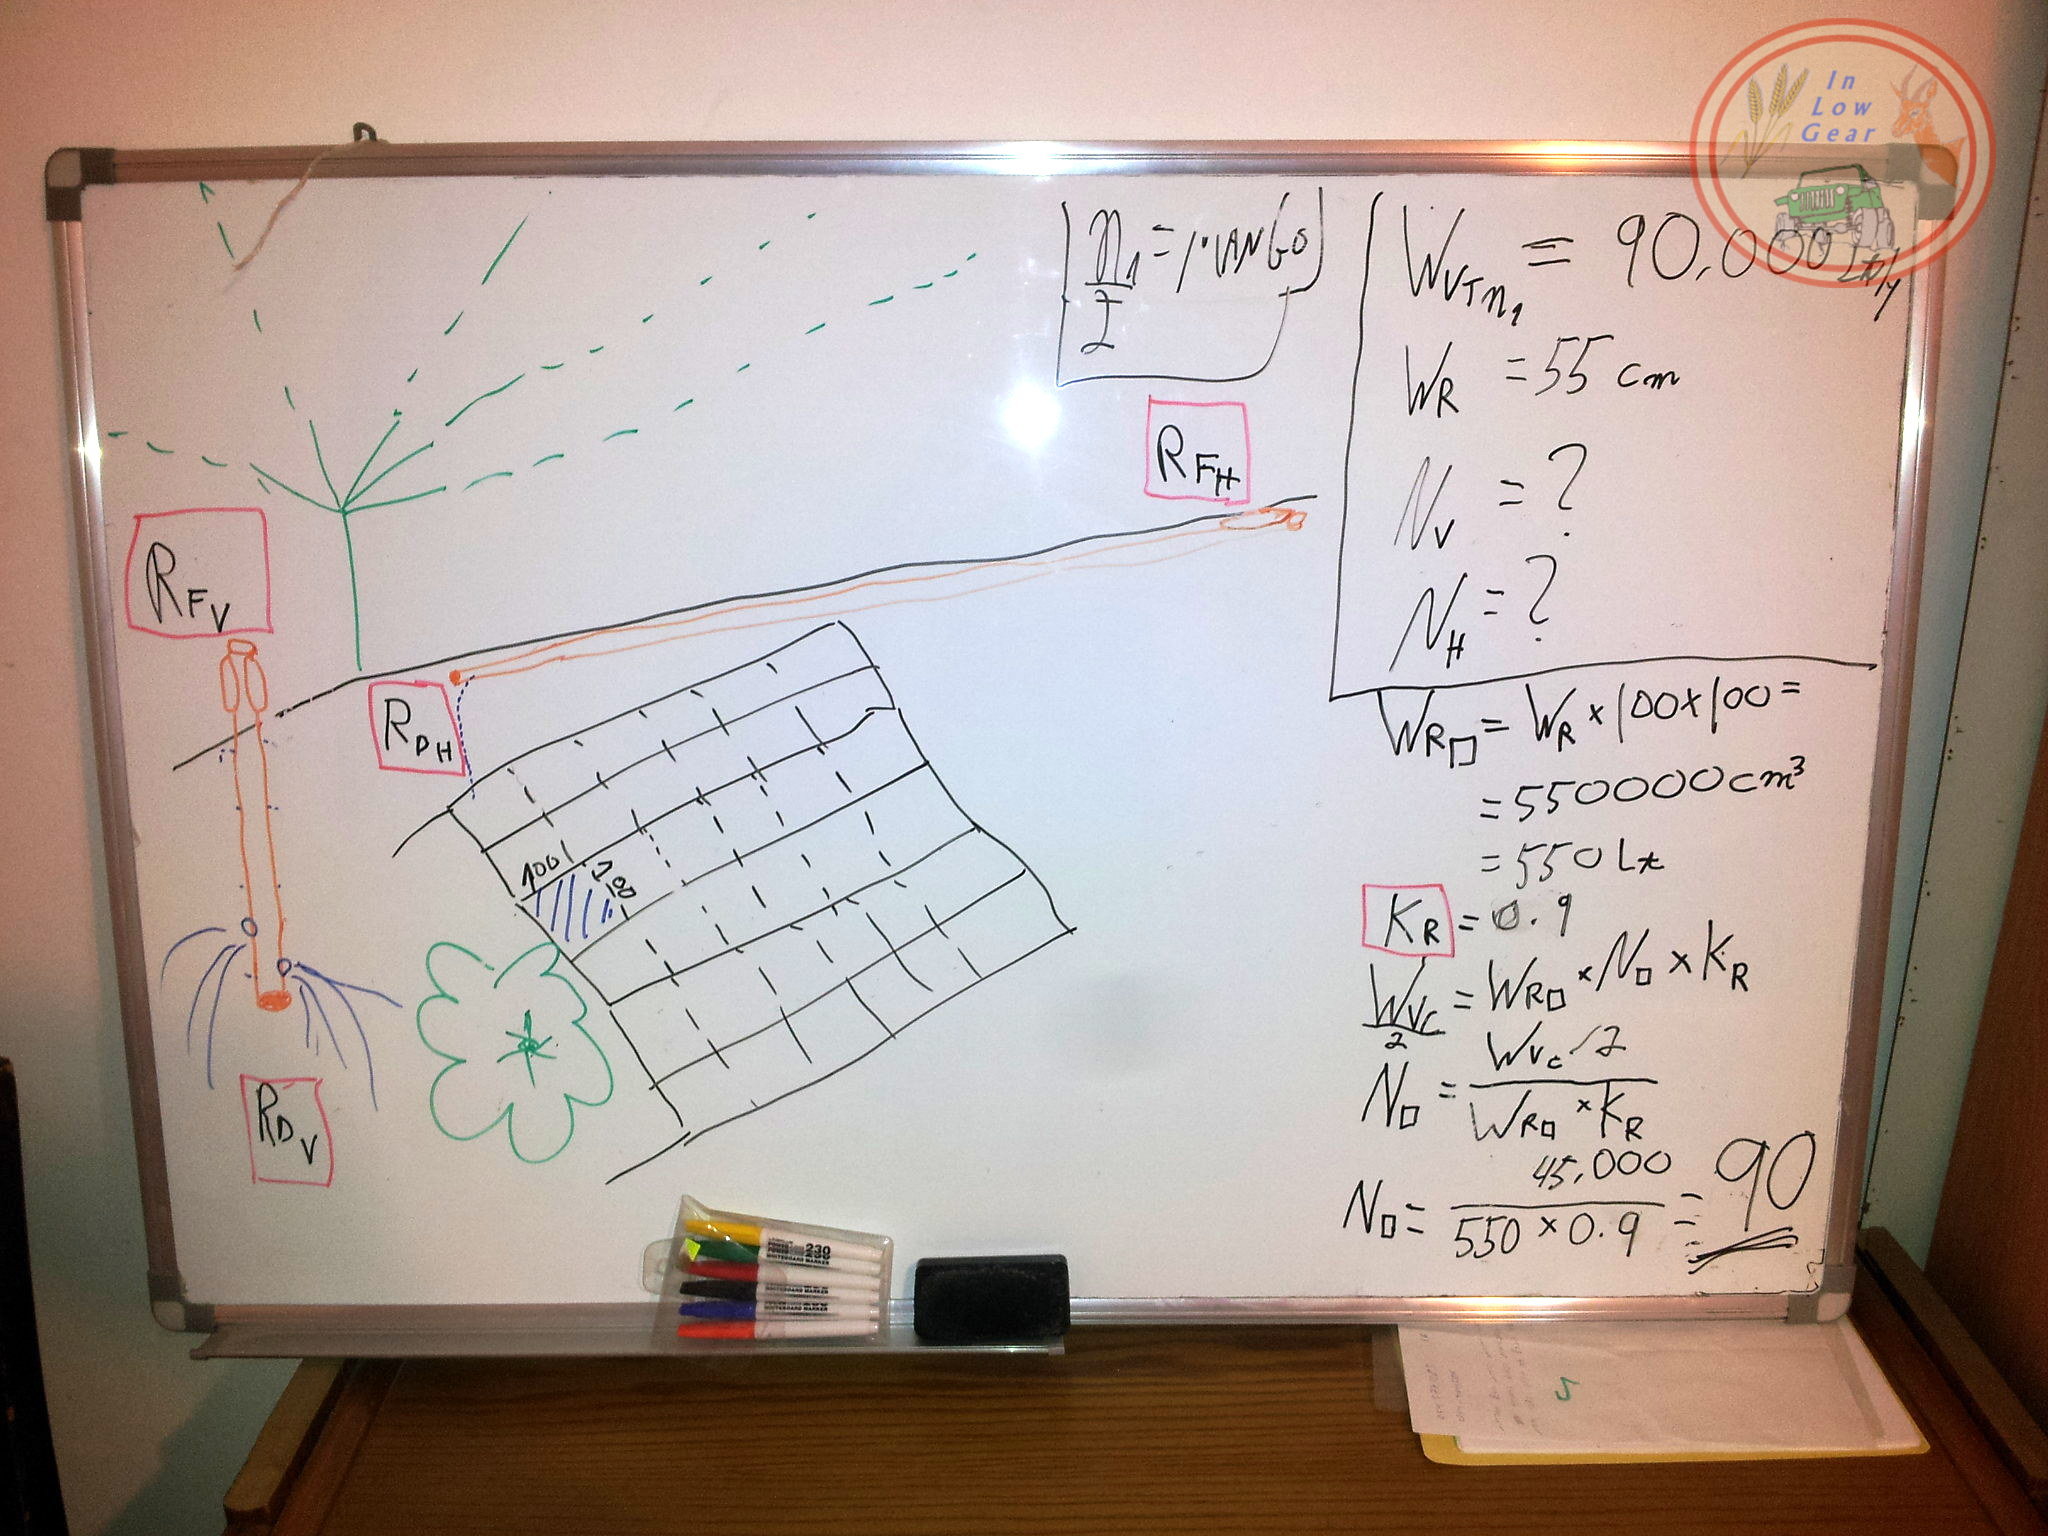 In
Low
Gear
n1 = MANGO
2
WVTn1 = 90.000 Lt/y
WR = 55 cm
NV = ?
NH = ?
RFH
RFV
RDH
RDV
100
100
WR□ = WR × 100 × 100 =
= 550000 cm³
= 550 Lt
KR = 0.9
WVc/2 = WR□ × N□ × KR
N□ = WVc/2 / WR□ × KR
N□ = 45.000 / 550 × 0.9 = 90
230
WHITEBOARD MARKER